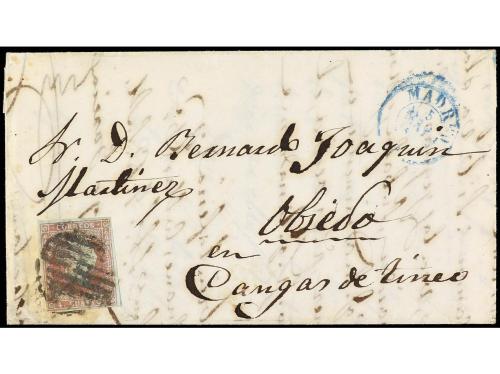 MADR
5
Sr. D. Bernardo Joaquin
Martinez
Obiedo
en
Cangas de tineo
CORREOS